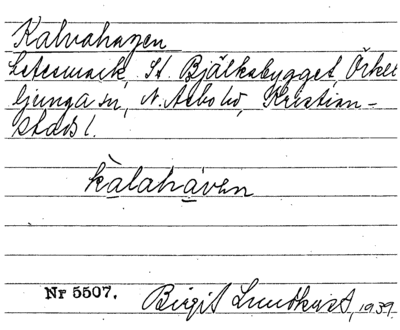 Kalvahagen
betesmark, St. Bjälkabygget, Örke
ljunga sn, N. Åsbo hd, Kristian-
stads l.
kalahaven
Nr 5507. Birgit Lundkvist, 1939.